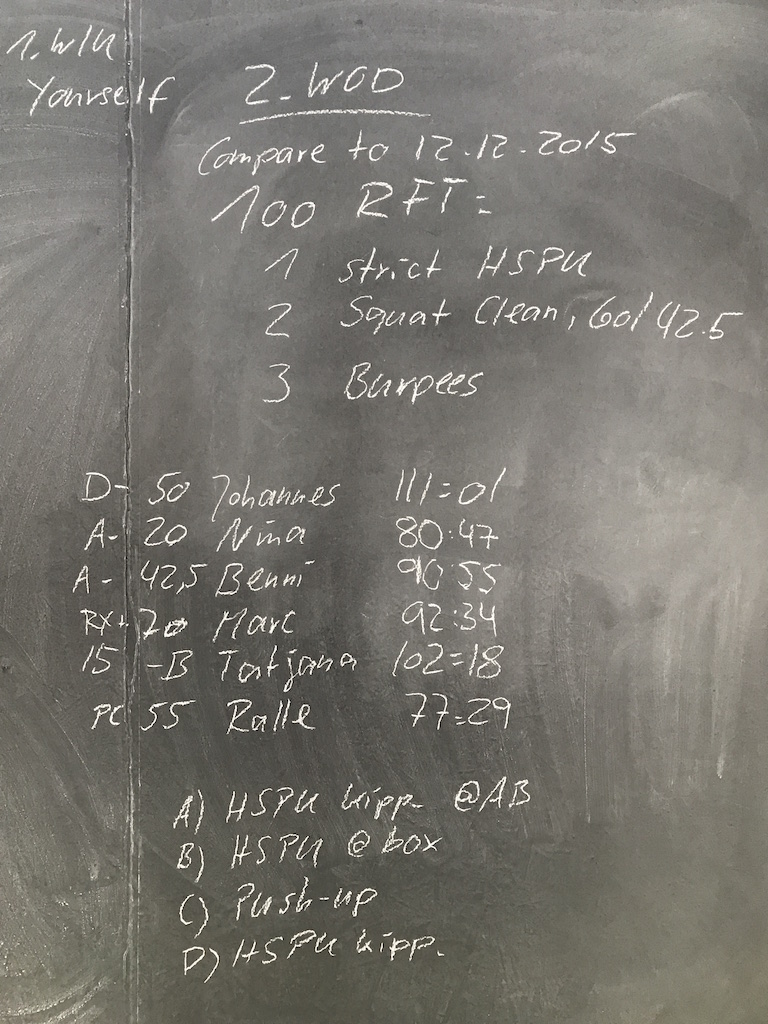 1. W/U
Yourself
2. WOD
Compare to 12.12.2015
100 RFT:
1 strict HSPU
2 Squat Clean, 60/42.5
3 Burpees
D- 50 Johannes 111:01
A- 20 Nina 80:47
A- 42,5 Benni 90:55
RX+ 70 Marc 92:34
15 -B Tatjana 102:18
PC 55 Ralle 77:29
A) HSPU kipp. @AB
B) HSPU @ box
C) Push-up
D) HSPU kipp.